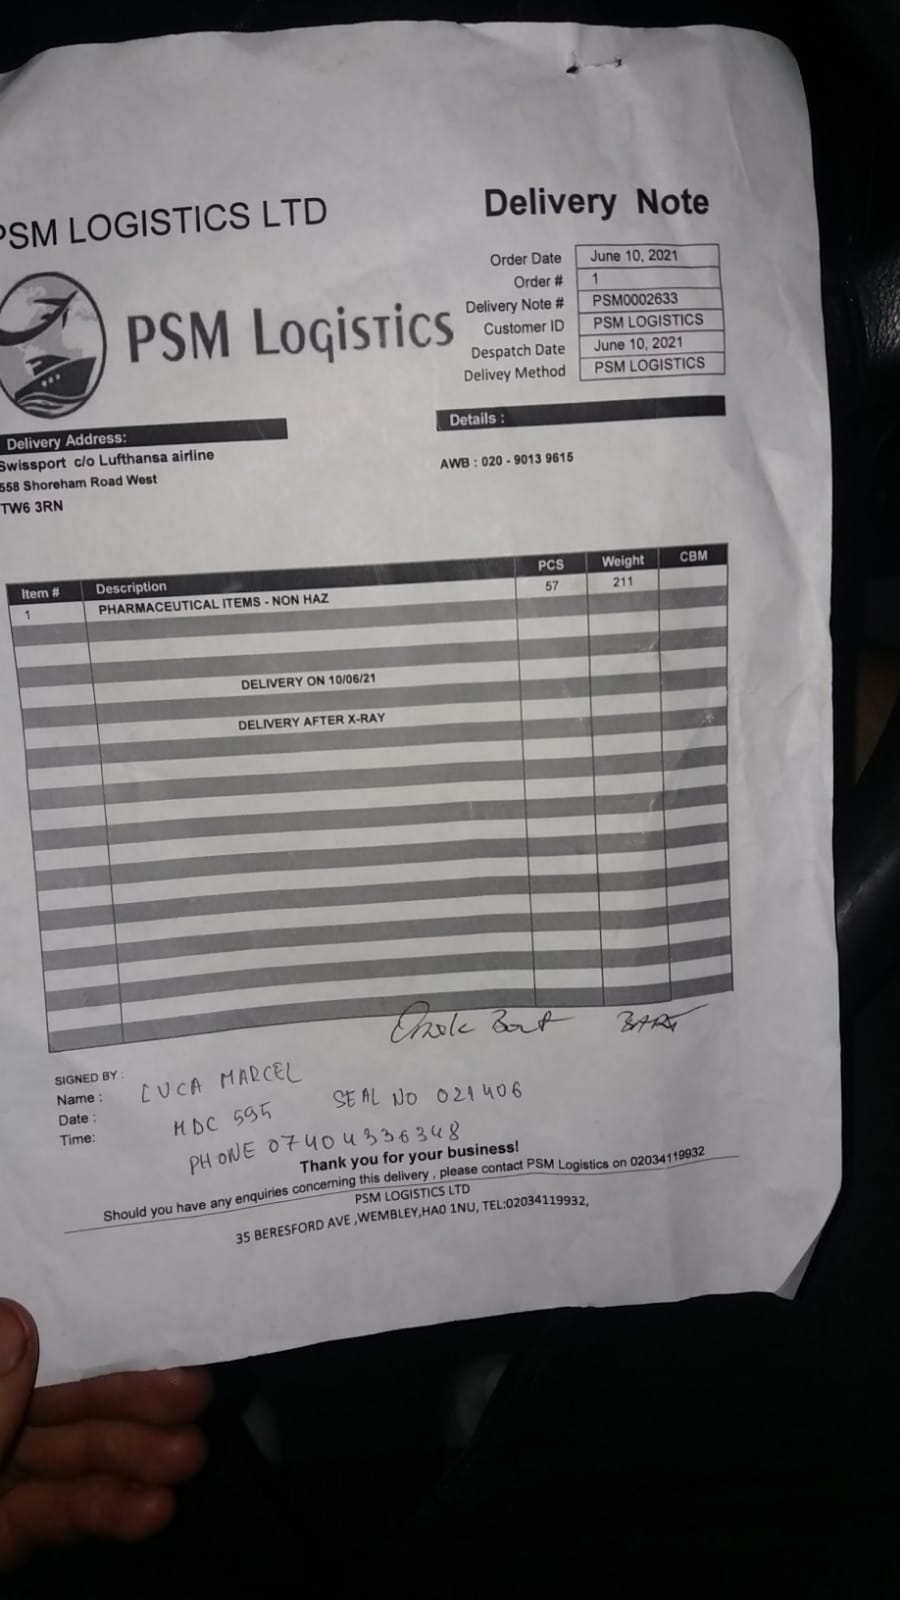 PSM LOGISTICS LTD
Delivery Note
PSM Logistics
Order Date June 10, 2021
Order # 1
Delivery Note # PSM0002633
Customer ID PSM LOGISTICS
Despatch Date June 10, 2021
Delivey Method PSM LOGISTICS
Delivery Address:
Swissport c/o Lufthansa airline
558 Shoreham Road West
TW6 3RN
Details :
AWB : 020 - 9013 9615
Item # Description PCS Weight CBM
1 PHARMACEUTICAL ITEMS - NON HAZ 57 211
DELIVERY ON 10/06/21
DELIVERY AFTER X-RAY
BART
SIGNED BY :
Name : LUCA MARCEL
Date : MDC 595 SEAL NO 021406
Time: PHONE 07404336348
Thank you for your business!
Should you have any enquiries concerning this delivery , please contact PSM Logistics on 02034119932
PSM LOGISTICS LTD
35 BERESFORD AVE ,WEMBLEY,HA0 1NU, TEL:02034119932,